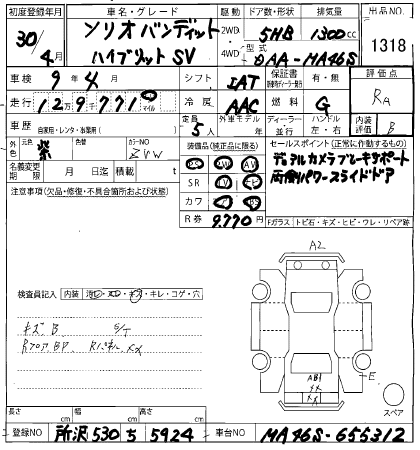 初度登録年月 車名・グレード 駆動 ドア数・形状 排気量 出品NO
30/4月 ソリオバンディット ハイブリットSV 2WD・4WD 5HB 1300cc 1318
型式 DAA-MA46S
車検 9年4月 シフト IAT 保証書 有・無 評価点
走行 12万9千771 マイル 冷房 AAC 燃料 G RA
車歴 自家用・レンタ・事業用( ) 定員 5人 外車モデル 年 ディーラー・並行 ハンドル 左・右 内装評価 B
外色 元色 紫 色替 カラーNO ZVW 装備品(純正品に限る) セールスポイント(正常に作動するもの)
PS PW AW デュアルカメラブレーキサポート
名義変更期限 月 日迄 積載 t SR TV ナビ 両側パワースライドドア
注意事項(欠品・修復・不具合箇所および状態) カワ
R券 9.770円 Fガラス トビ石・キズ・ヒビ・ワレ・リペア跡
A2
検査員記入 内装 キレ・コゲ・穴
キズB S/T
Rフロア BP Rパネル XX
E
スペア
長さ cm 幅 cm 高さ cm
登録NO 所沢 530 ち 5924 車台NO MA46S-655312